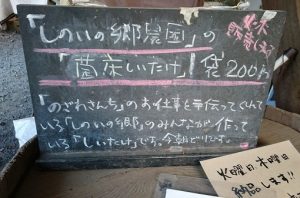 「しのいの郷農園」の
「菌床しいたけ」袋200円
火・木
販売しマス
「のざわさんち」のお仕事を手伝ってくれて
いる「しのいの郷」のみんなが作って
いる「しいたけ」です。今朝どりです。
火曜日、木曜日
納品します!!